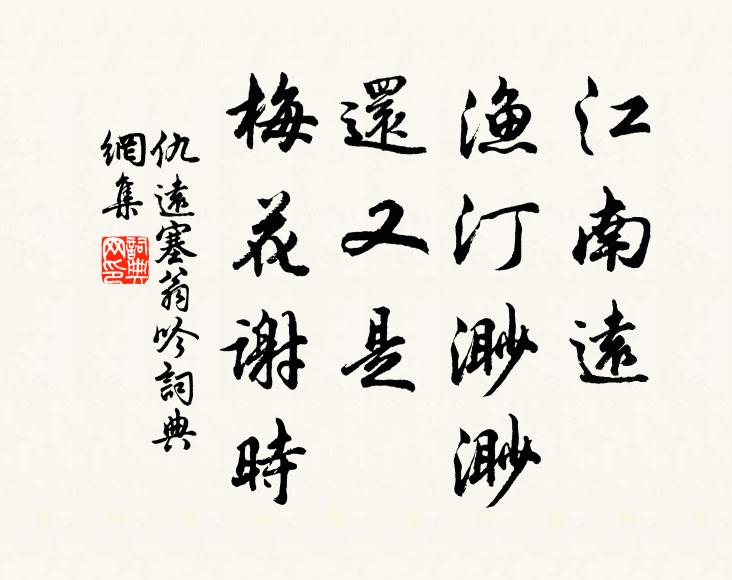 江南遠
漁汀渺渺
還又是
梅花謝時
仇遠塞翁吟詞典
網集
詞典
网印